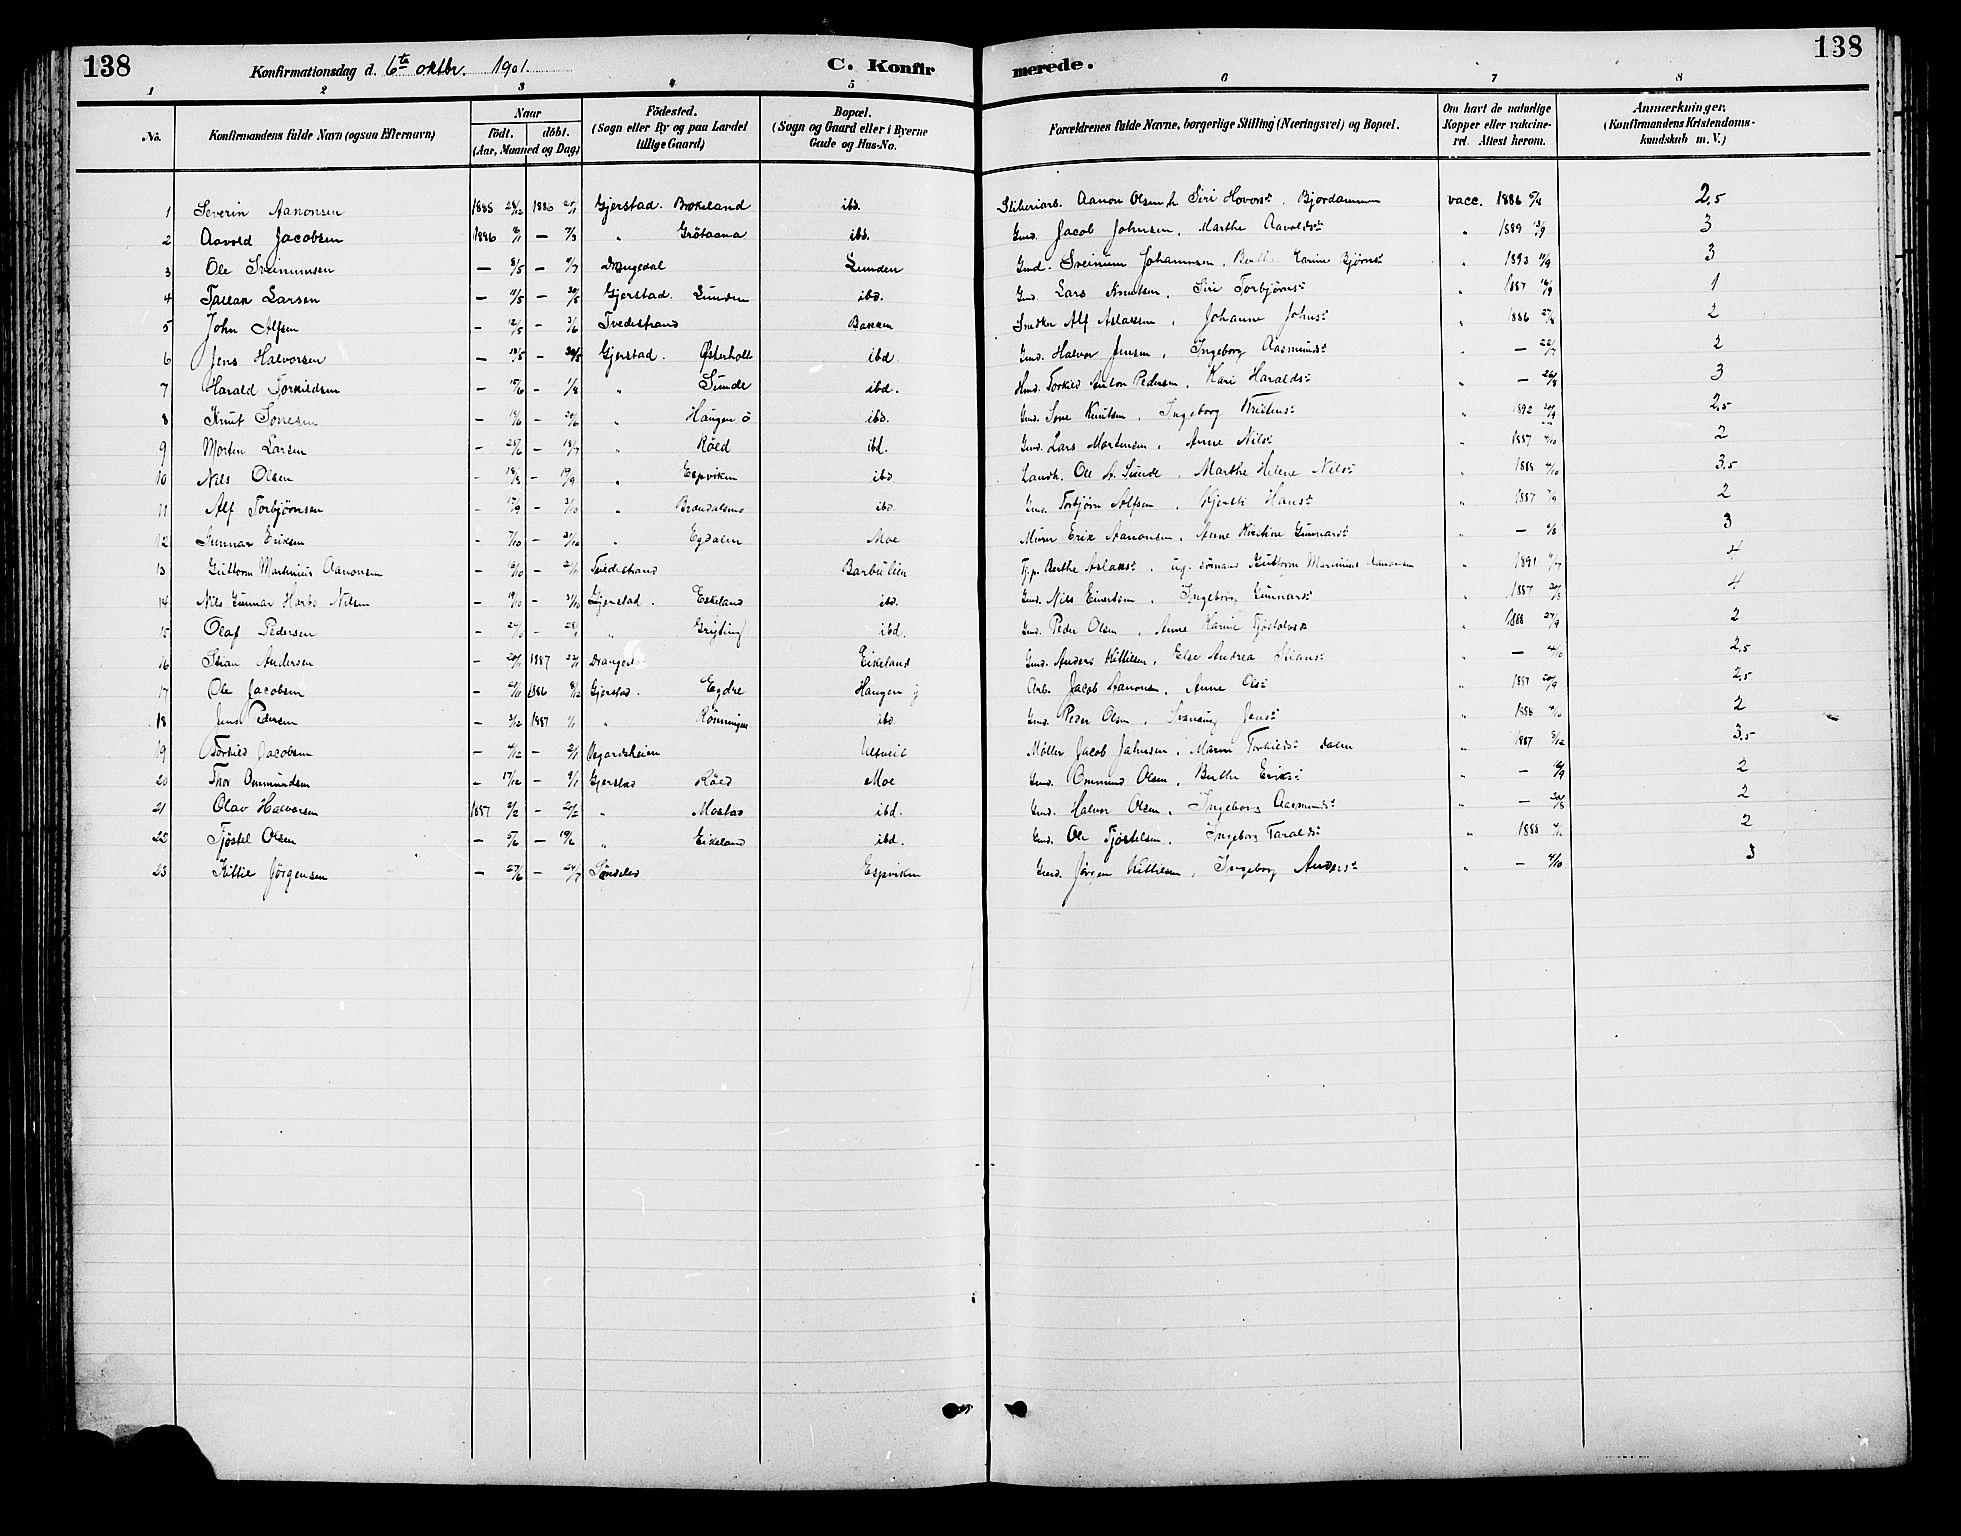 138
138
Konfirmationsdag d. 6te oktbr. 1901.
C. Konfirmerede.
1 2 3 4 5 6 7 8
No.
Konfirmandens fulde Navn (ogsaa Efternavn)
Naar
födt. döbt.
(Aar, Maaned og Dag)
Födested.
(Sogn eller By og paa Landet tillige Gaard)
Bopæl.
(Sogn og Gaard eller i Byerne Gade og Hus-No.
Forældrenes fulde Navne, borgerlige Stilling (Næringsvei) og Bopæl.
Om havt de naturlige Kopper eller vakcineret. Attest herom.
Anmærkninger.
(Konfirmandens Kristendomskundskab m. V.)
1 Severin Aanonsen 1885 28/12 1886 Gjerstad. Brokeland ibd. Aanon Olsen Siri vacc. 1886 2,5
2 Aavold Jacobsen 1886 — 7/3 " Grötaana ibd. Gmd. Jacob Johnsen, Marthe Aavoldsd " 1889 13/9 3
3 Ole Sveinumsen — 8/5 — Drangedal Lunden Gmd. Sveinum Johannsen, Berthe Karine Bjørnsd " 1893 3
4 Tallak Larsen — — 30/5 Gjerstad. Lunden ibd. Gmd. Lars Knutsen, Siri Torbjörnsd " 1887 1
5 John Alfsen — 12/5 — 3/6 Tvedestrand Bakken Snedker Alf Aslaksen, Johanne Johnsd " 1886 27/8 2
6 Jens Halvorsen — — 30/5 Gjerstad. Østerholt ibd Gmd. Halvor Jensen, Ingeborg Aasmundsd " — 22/7 2
7 Harald Torkildsen — 15/6 — 1/8 " Sunde ibd. Torkild Anton Pedersen, Kari Haraldsd " — 26/8 3
8 Knut Sonesen — — 20/6 " Haugen ö ibd. Gmd. Sone Knutsen, Ingeborg " 1892 2,5
9 Morten Larsen — — 18/7 " Röed ibd. Gmd. Lars Mortensen, Anne Nilsd " 1887 2
10 Nils Olsen - 18/8 — 19/9 " Espviken ibd Landh. Ole A. Sunde, Marthe Helene Nilsd " 1888 3,5
11 Alf Torbjørnsen - 17/9 — 3/10 " ibd. Gmd. Torbjørn Alfsen, Hansd " 1887 2
12 Gunnar Eriksen - 7/10 — 31/10 " Egdalen Moe Murer Erik Aanonsen, Anne Kirstine Gunnarsd " — 3
13 Guttorm Martinius Aanonsen — — Tvedestrand Barbulien Tj.p. Berthe Aslaksd, ug. sömand Guttorm Martinius Aanonsen " 1891 4
14 Nils Gunnar Harbo Nilsen — 19/10 — 31/10 Gjerstad. Eskeland ibd. Gmd. Nils Einertsen, Ingeborg Gunnarsd " 1887 4
15 Olaf Pedersen — — " Grijting ibd. Gmd. Peder Olsen, Anne Karine " 1888 27/9 2
16 Stian Andersen — 1887 Drangedal Eikeland Gmd. Anders Kittilsen, Else Andrea Stiansd " — 4/10 2,5
17 Ole Jacobsen — 1886 8/12 Gjerstad. Egdre Haugen y Arb. Jacob Aanonsen, Anne Olsd " 1887 20/9 2,5
18 Jens Pedersen — 1887 " Rönningen ibd Gmd. Peder Olsen, Jensd " 1888 2
19 Torkild Jacobsen — — 2/1 Vegardsheien Ulsveit Møller Jacob Jahnsen, Maren Torkildsd Dalen " 1887 8/12 3,5
20 Thor Ommundsen — 17/12 — 9/1 Gjerstad Röed Moe Gmd. Ommund Olsen, Berthe Eriksd " — 2
21 Olav Halvorsen 1887 2/2 — 20/2 " Mostad ibd. Gmd. Halvor Olsen, Ingeborg Aasmundsd " — 2
22 Tjöstel Olsen — 5/6 — 19/6 " Eikeland ibd. Gmd. Ole Tjöstelsen, Ingeborg Taraldsd " 1888 2
23 Kittil Jörgensen — 27/6 — 24/7 Söndeled Espviken Gmd. Jørgen Kittilsen, Ingeborg Andersd " — 4/10 3